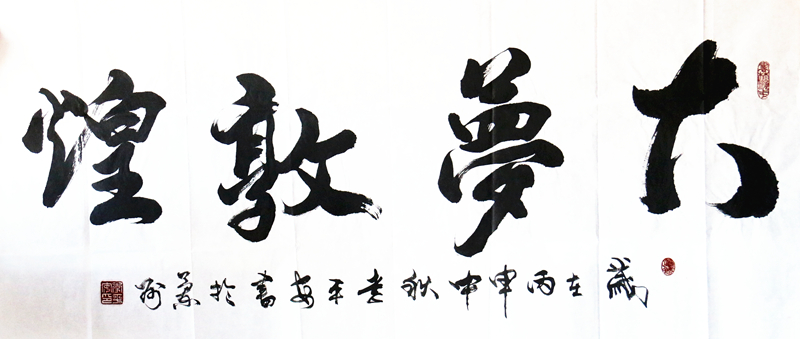 大夢敦煌
歲在丙申中秋李平安書於蘭州